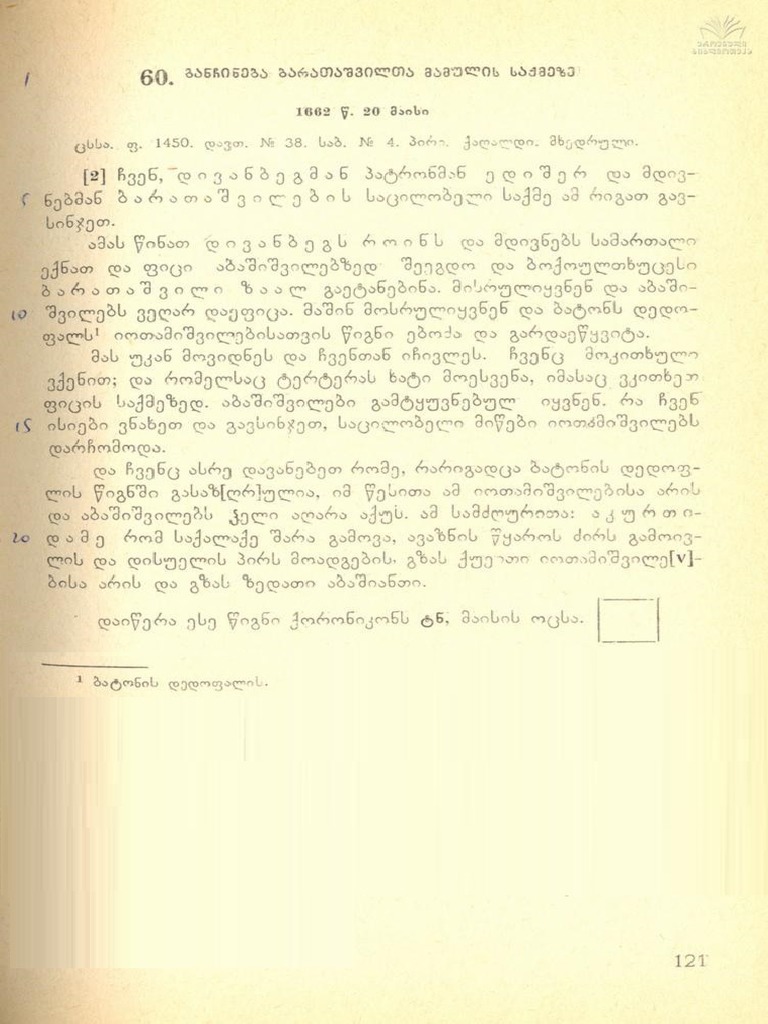 ეროვნული
ბიბლიოთეკა
1
60. განჩინება ბარათაშვილთა მამულის საქმეზე
1662 წ. 20 მაისი
ცსსა. ფ. 1450. დავთ. № 38. საბ. № 4. პირი. ქაღალდი. მხედრული.
[2] ჩვენ, დივანბეგმან პატრონმან ედიშერ და მდივ-
5 ნებმან ბარათაშვილების საცილობელი საქმე ამ რიგათ გავ-
სინჯეთ.
ამას წინათ დივანბეგს როინს და მდივნებს სამართალი
ექნათ და ფიცი აბაშიშვილებზედ შეეგდო და ბოქოულთხუცესი
ბარათაშვილი ზაალ გაეტანებინა. მისრულიყვნენ და აბაში-
10 შვილებს ვეღარ დაეფიცა. მაშინ მოსრულიყვნენ და ბატონს დედო-
ფალს¹ იოთამიშვილებისათვის წიგნი ებოძა და გარდაეწყვიტა.
მას უკან მოვიდნეს და ჩვენთან იჩივლეს. ჩვენც მოკითხული
ვქენით; და რომელსაც ტერტერას ხატი მოესვენა, იმასაც ვკითხეთ
ფიცის საქმეზედ. აბაშიშვილები გამტყუვნებულ იყვნენ. რა ჩვენ
15 ისიები ვნახეთ და გავსინჯეთ, საცილობელი მიწები იოთამიშვილებს
დარჩომოდა.
და ჩვენც ასრე დავანებეთ რომე, რარიგადცა ბატონის დედოფ-
ლის წიგნში გასაზ[ღრ]ულია, იმ წესითა ამ იოთამიშვილებისა არის
და აბაშიშვილებს ჴელი აღარა აქუს. ამ სამძღურითა: აკურთი-
20 დამე რომ საქალაქე შარა გამოვა, ავაზნის წყაროს ძირს გამოივ-
ლის და დისუელის პირს მოადგების, გზას ქუეითი იოთამიშვილე[v]-
ბისა არის და გზას ზედათი აბაშიანთი.
დაიწერა ესე წიგნი ქორონიკონს ტნ, მაისის ოცსა.
¹ ბატონის დედოფალის.
121